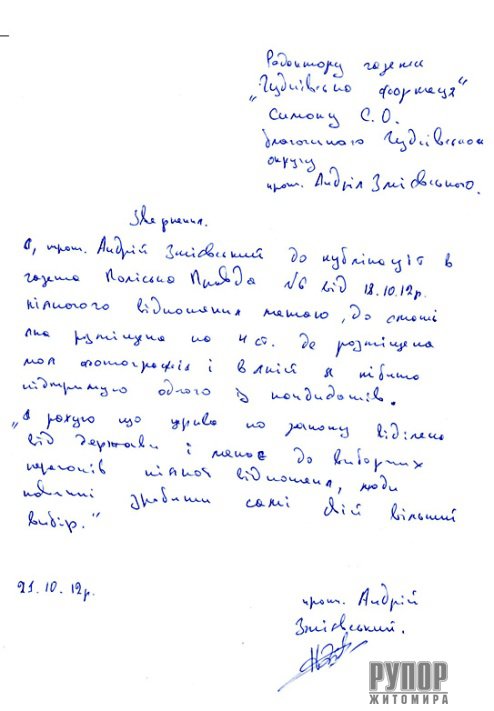 Редактору газети
"Чуднівська формація"
Симону С.О.
благочинного Чуднівського
округу
прот. Андрія Змієвського.
Звернення.
Я, прот. Андрій Змієвський до публікації в
газета Поліська Правда №6 від 18.10.12р.
ніякого відношення немаю, до статі
яка розміщена на 4 ст. де розміщена
моя фотографія і в якій я нібито
підтримую одного із кандидатів.
"Я рахую що церква по закону відділена
від держави і немає до виборчих
перегонів ніякого відношеня, люди
повинні зробити самі свій вільний
вибір."
21.10.12р.
прот. Андрій
Змієвський.
РУПОР
ЖИТОМИРА